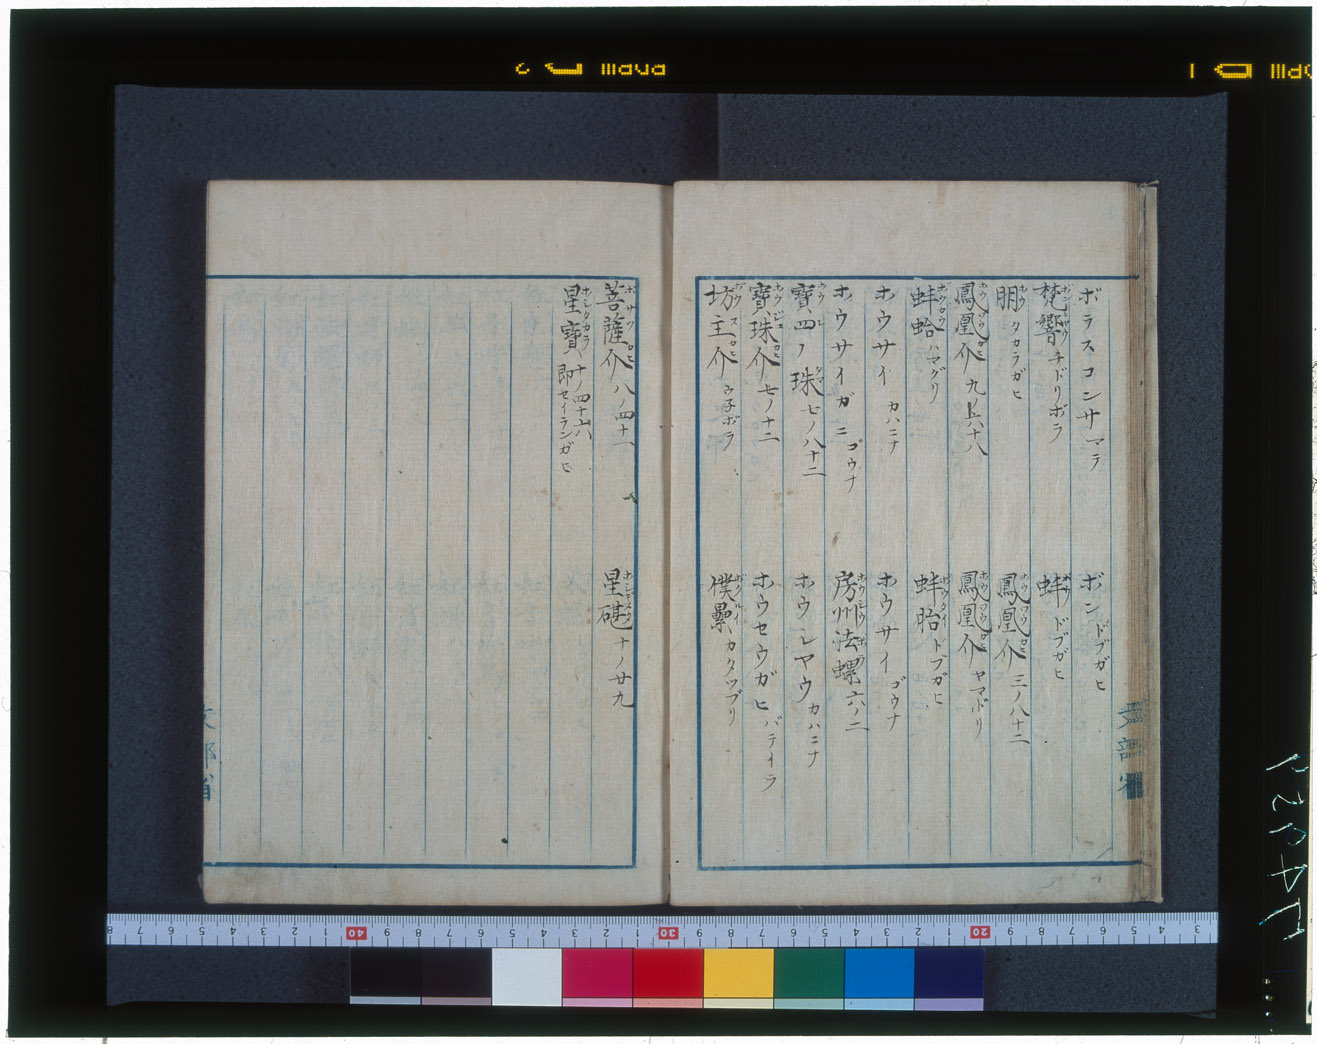 ボラスコンサ マラ
ボン ドブガヒ
梵響 チドリボラ
蚌 ドブガヒ
明 タカラガヒ
鳳凰介 三ノ八十二
鳳凰介 九ノ六十八
鳳凰介 ヤマドリ
蚌蛤 ハマグリ
ドブガヒ
ホウサイ カハニナ
ホウサイ ゴウナ
ホウサイガニ ゴウナ
房州法螺 六ノ二
寶四ノ珠 七ノ八十二
ホウシヤウ カハニナ
寶珠介 七ノ十二
ホウセウガヒ バテイラ
坊主介 ウ子ボラ
カタツブリ
菩薩介 八ノ四十一
星碪 十ノ廿九
星寶 十ノ四十六
即セイランガヒ
文部省